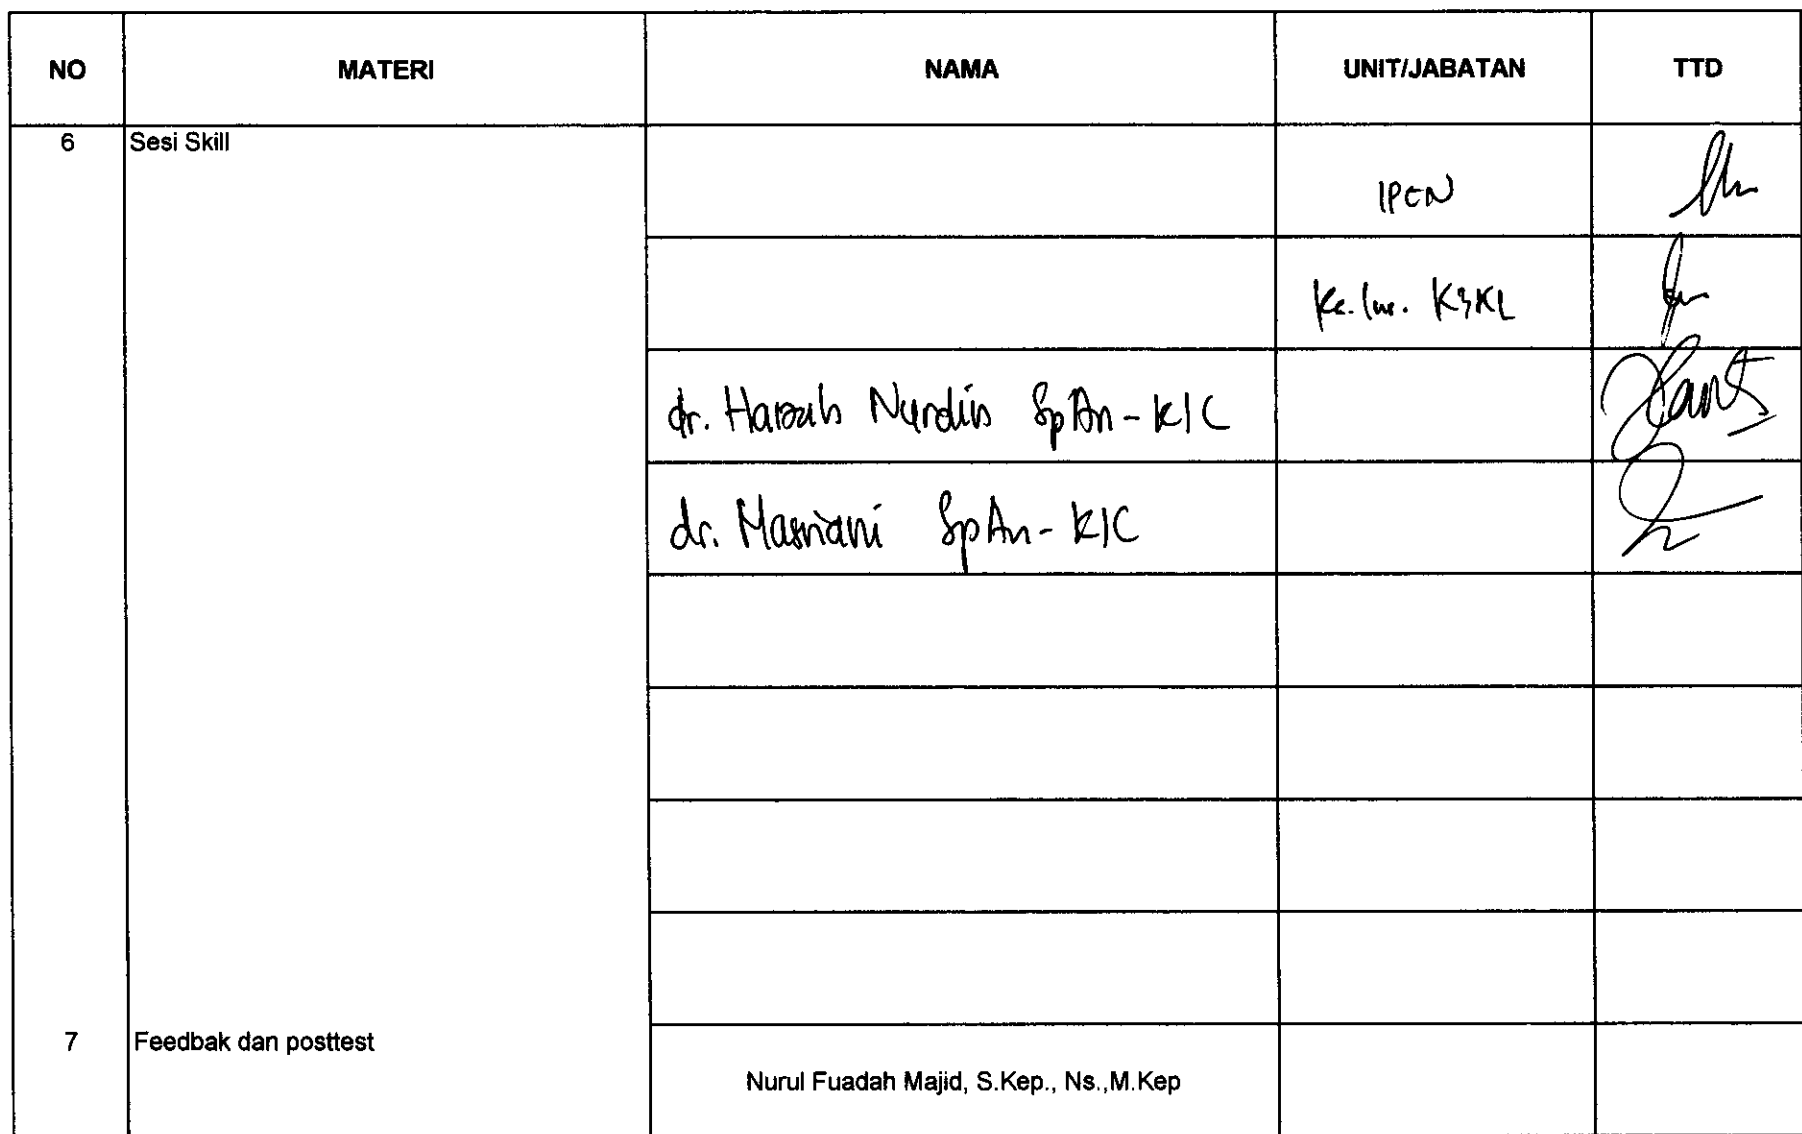 NO MATERI NAMA UNIT/JABATAN TTD
6 Sesi Skill
IPCN
KSKL
dr. Nurdin SpAn-KIC
dr. Masriani SpAn-KIC
7 Feedbak dan posttest
Nurul Fuadah Majid, S.Kep., Ns.,M.Kep